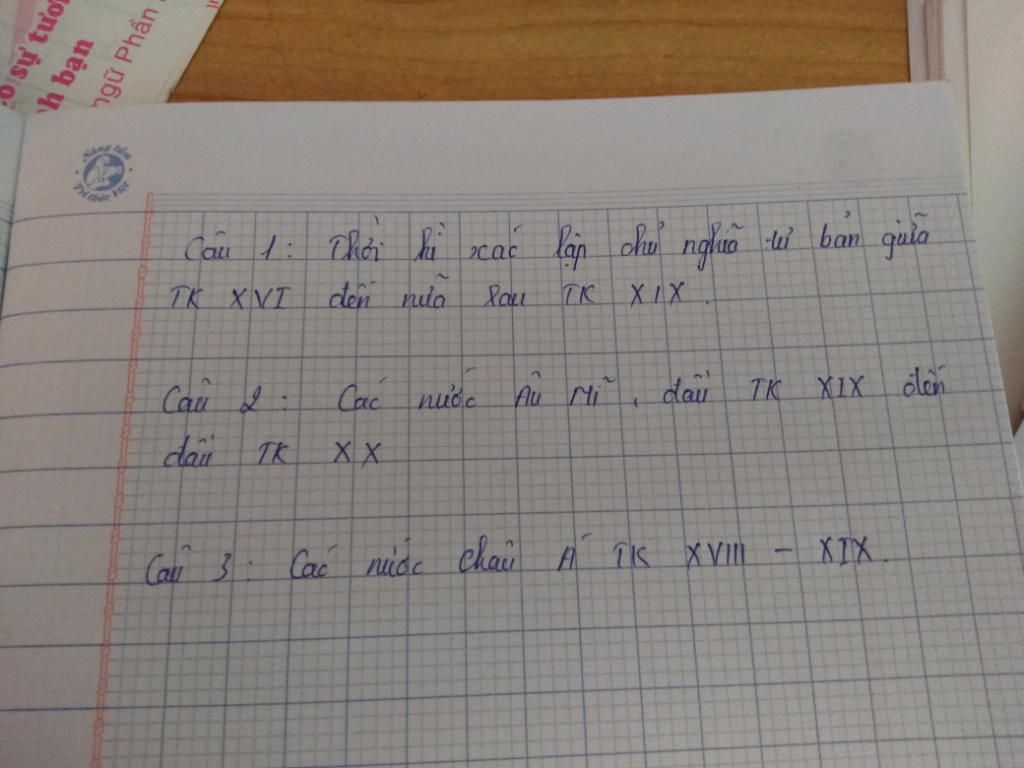 có sự tươ
nh bạn
ngữ Phần
Nâng tầm
Tri thức Việt
Câu 1: Thời kì xác lập chủ nghĩa tư bản giữa
TK XVI đến nửa sau TK XIX.
Câu 2: Các nước Âu Mĩ, đầu TK XIX đến
đầu TK XX
Câu 3: Các nước châu Á TK XVIII - XIX.